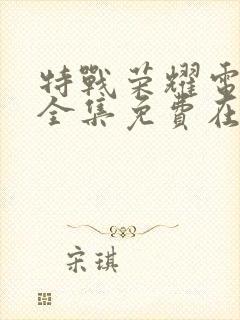 特戰荣耀電
全集免費在
宋琪